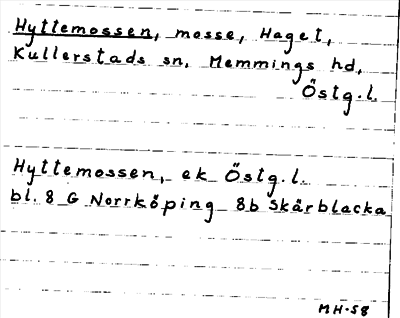 Hyttemossen, mosse, Haget,
Kullerstads sn, Memmings hd,
Östg.l.
Hyttemossen, ek Östg.l.
bl. 8 G Norrköping 8b Skärblacka
MH-58